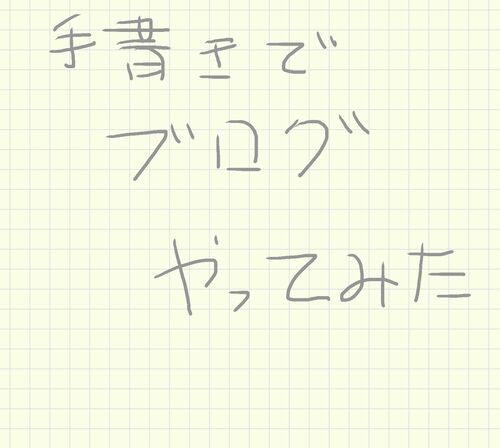 手書きで
ブログ
やってみた